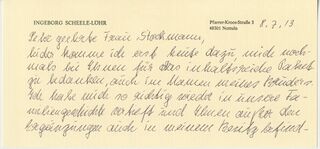 INGEBORG SCHEELE-LÜHR
Pfarrer-Kroos-Straße 3
48301 Nottuln
8.7.13
Sehr geehrte Frau Stockmann,
leider komme ich erst heute dazu, mich noch-
mals bei Ihnen für das inhaltsreiche Paket
zu bedanken, auch im Namen meines Bruders.
Ich habe mich so richtig wieder in unsere Fa-
miliengeschichte vertieft und Ihnen außer den
Ergänzungen auch in meinem Besitz befind-